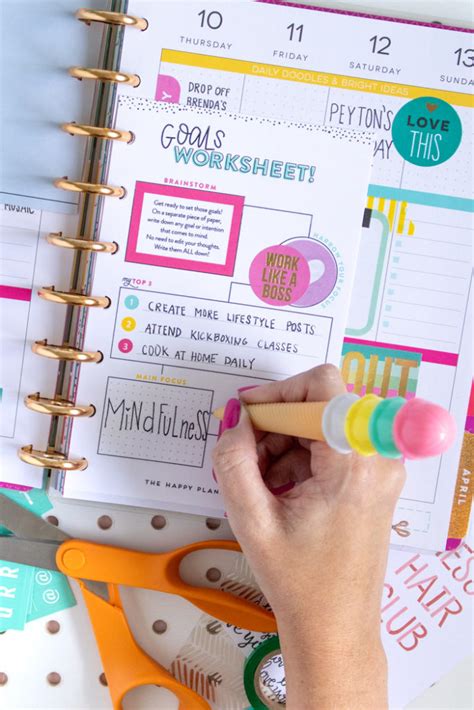 10
THURSDAY
11
FRIDAY
12
SATURDAY
13
SUNDAY
DAILY DOODLES & BRIGHT IDEAS
DROP OFF
BRENDA'S
PEYTON'S
LOVE
THIS
GOALS
WORKSHEET!
BRAINSTORM
Get ready to set those goals!
On a separate piece of paper,
write down any goal or intention
that comes to mind.
No need to edit your thoughts.
Write them ALL down!
NARROW YOUR FOCUS
WORK
LIKE A
BOSS
my TOP 3
1 CREATE MORE LIFESTYLE POSTS
2 ATTEND KICKBOXING CLASSES
3 COOK AT HOME DAILY
MAIN FOCUS
MiNdFulNess
THE HAPPY PLAN
OUT
APRIL
HAIR
CLUB